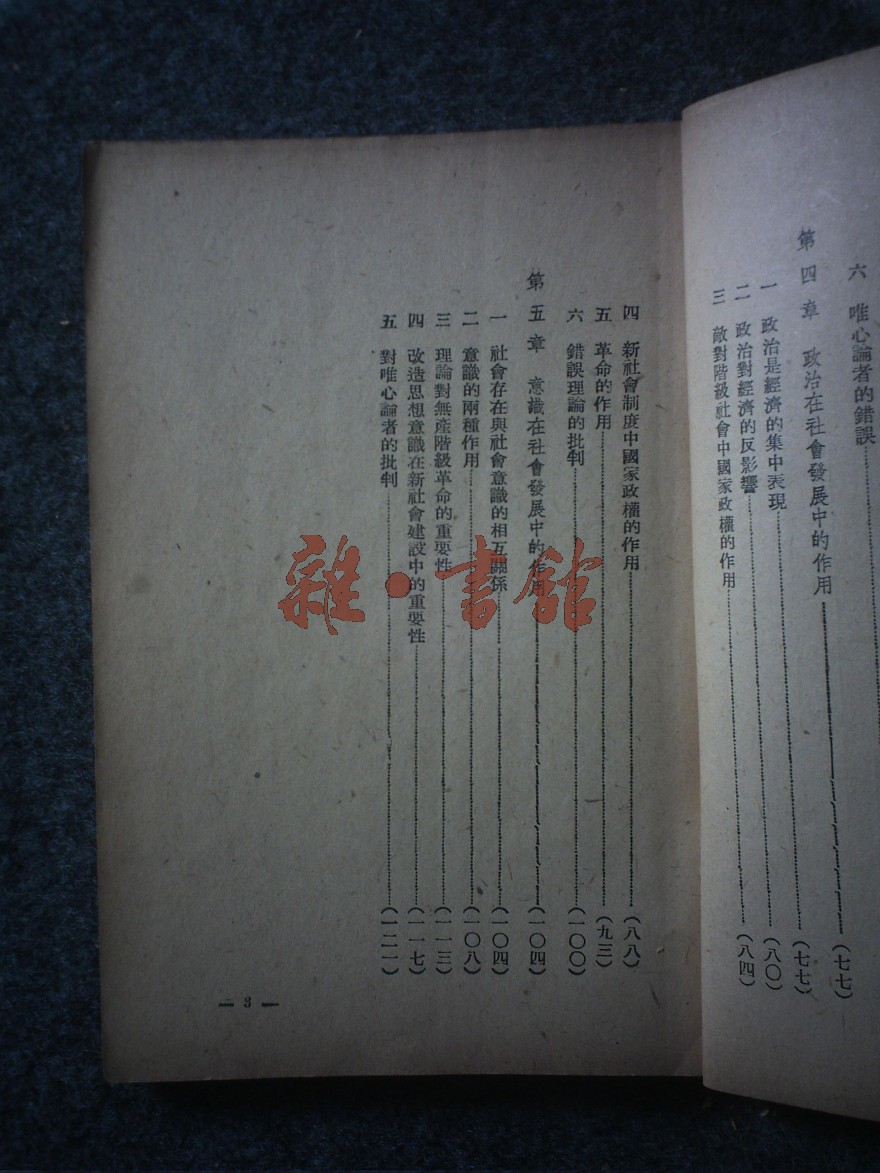 六 唯心論者的錯誤
第四章 政治在社會發展中的作用(七七)
一 政治是經濟的集中表現(七七)
二 政治對經濟的反影響(八〇)
三 敵對階級社會中國家政權的作用(八四)
四 新社會制度中國家政權的作用(八八)
五 革命的作用(九三)
六 錯誤理論的批判(一〇〇)
第五章 意識在社會發展中的作用(一〇四)
一 社會存在與社會意識的相互關係(一〇四)
二 意識的兩種作用(一〇八)
三 理論對無產階級革命的重要性(一一三)
四 改造思想意識在新社會建設中的重要性(一一七)
五 對唯心論者的批判(一二一)
— 3 —
雜·書館